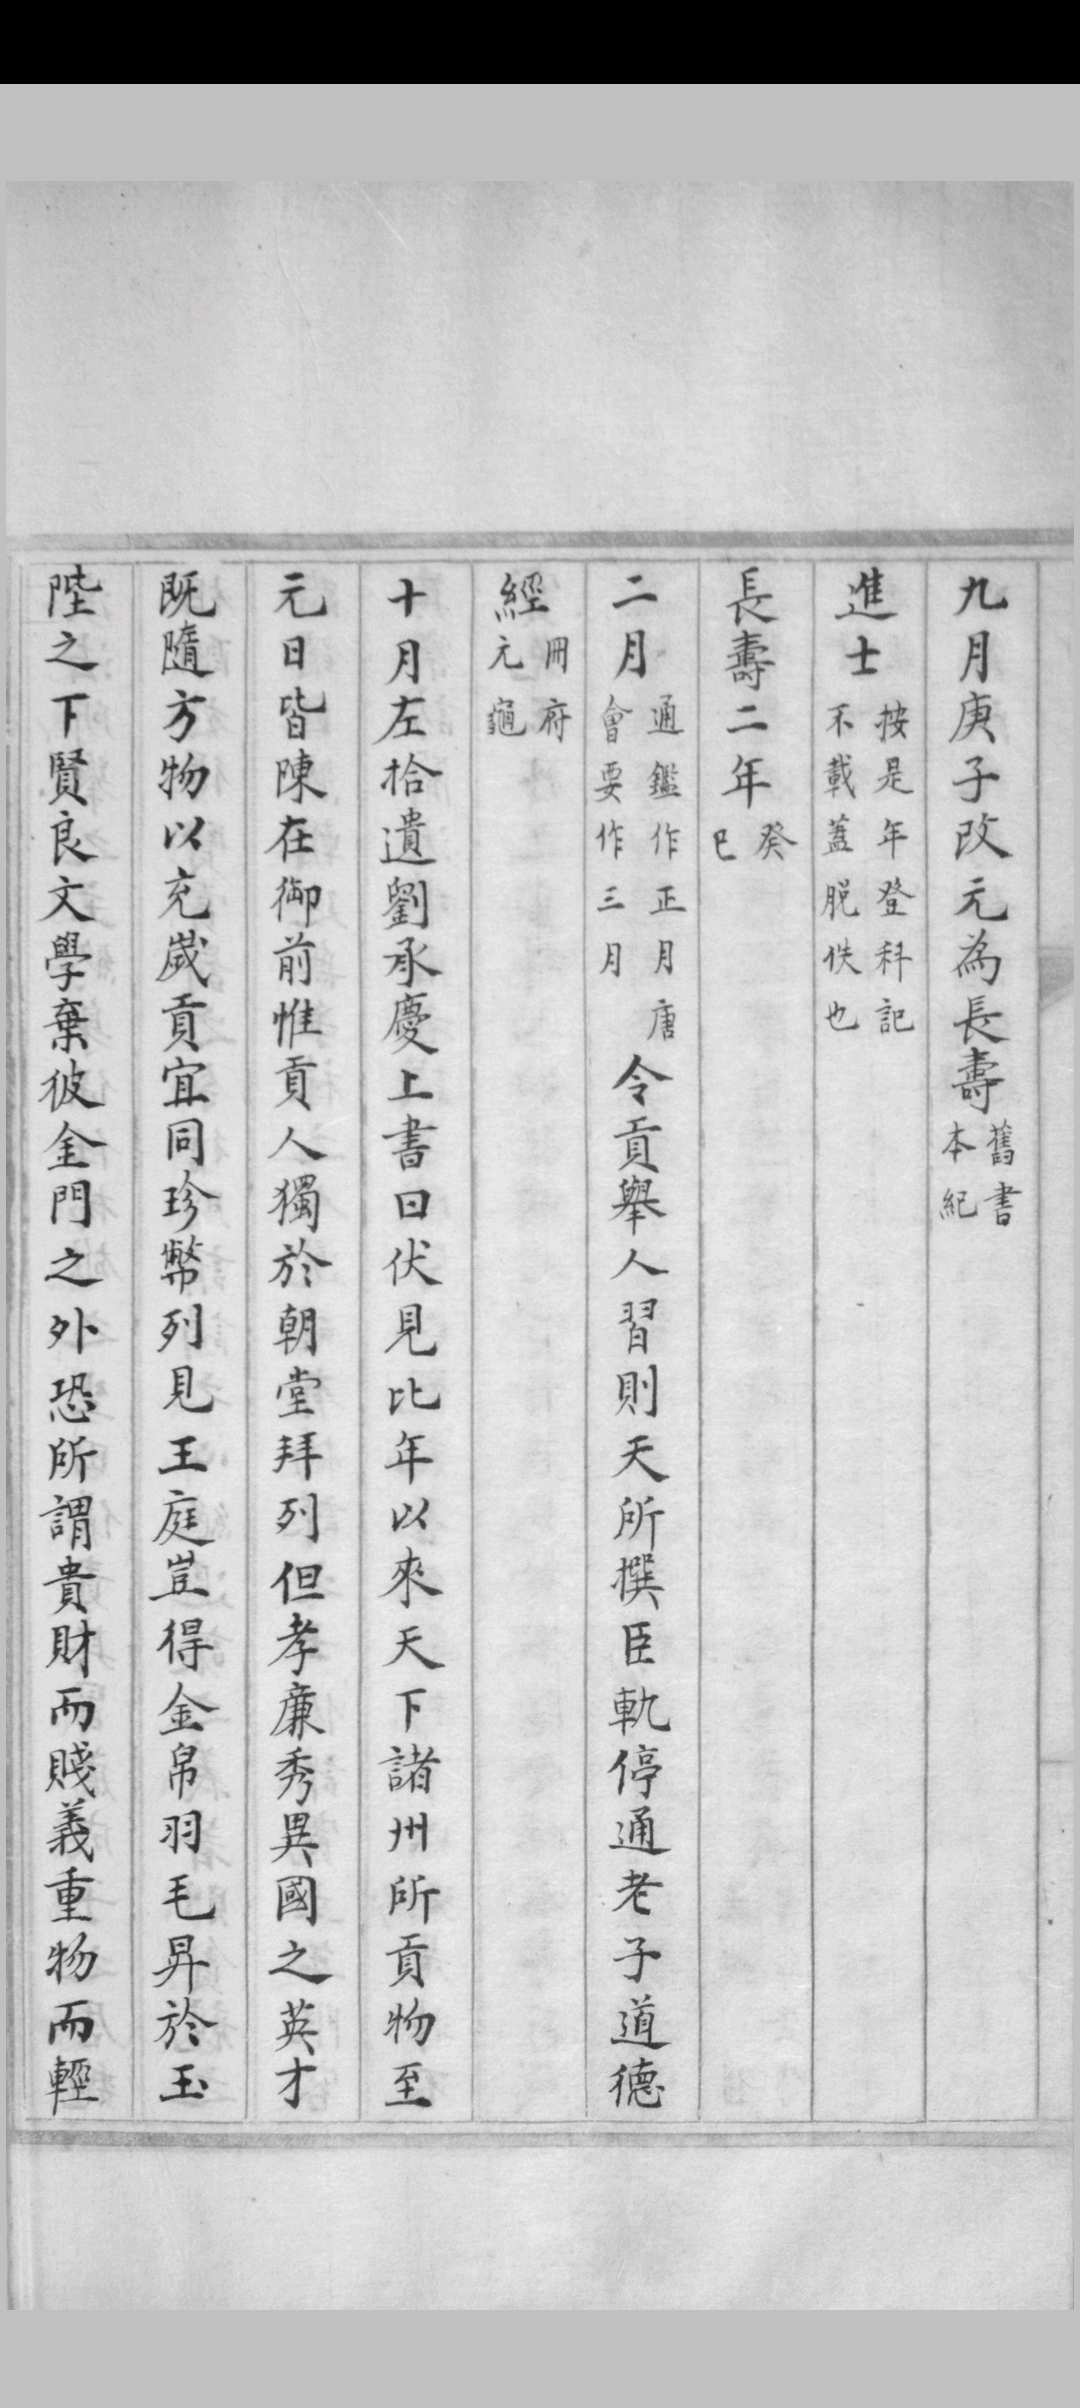 九月庚子改元為長壽舊書本紀
進士按是年登科記不載蓋脫佚也
長壽二年癸巳
二月通鑑作正月唐會要作三月令貢舉人習則天所撰臣軌停通老子道德
經冊府元龜
十月左拾遺劉承慶上書曰伏見比年以來天下諸州所貢物至
元日皆陳在御前惟貢人獨於朝堂拜列但孝廉秀異國之英才
既隨方物以充歲貢宜同珍幣列見王庭豈得金帛羽毛昇於玉
陛之下賢良文學棄彼金門之外恐所謂貴財而賤義重物而輕